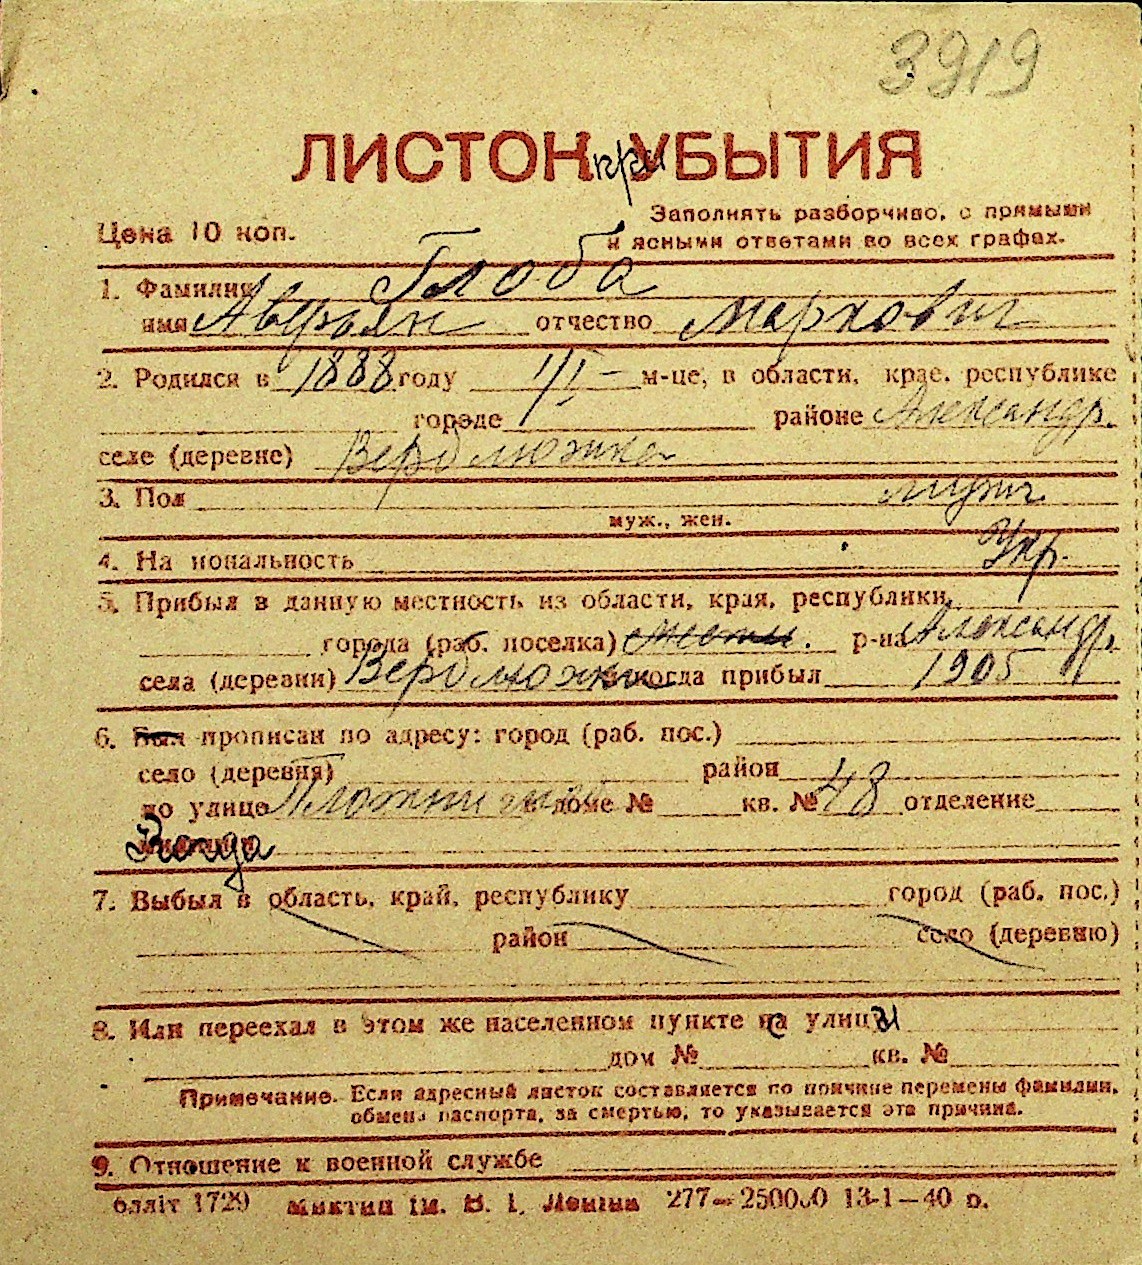 3919
ЛИСТОК при УБЫТИЯ
Цена 10 коп.
Заполнять разборчиво, с прямыми
и ясными ответами во всех графах.
1. Фамилия Глоба
имя Аверьян отчество Маркович
2. Родился в 1888 году 1/I – м-це, в области, крае, республике
городе районе Александр.
селе (деревне) Вердлюжка
3. Пол мужч.
муж., жен.
4. На иональность Укр.
5. Прибыл в данную местность из области, края, республики,
города (раб. поселка) р-на Александр.
села (деревни) Вердлюжки когда прибыл 1905
6. Был прописан по адресу: город (раб. пос.)
село (деревня) район
по улице доме № кв. № 48 отделение
7. Выбыл в область, край, республику город (раб. пос.)
район село (деревню)
8. Или переехал в этом же населенном пункте с улицы
дом № кв. №
Примечание. Если адресный листок составляется по причине перемены фамилии,
обмена паспорта, за смертью, то указывается эта причина.
9. Отношение к военной службе
блліт 1729 им. В. І. Леніна 277—250000 13-1—40 р.